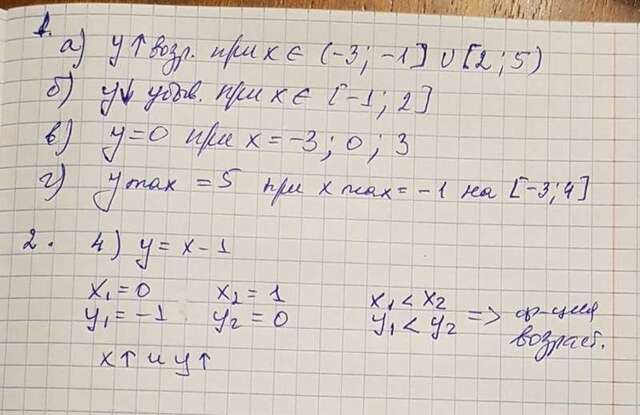 1.
а) y↑ возр. при x ∈ (-3; -1] ∪ [2; 5)
б) y↓ убыв. при x ∈ [-1; 2]
в) y=0 при x = -3; 0; 3
г) y max = 5 при x max = -1 на [-3; 4]
2. 4) y = x - 1
x₁ = 0 x₂ = 1 x₁ < x₂
y₁ = -1 y₂ = 0 y₁ < y₂ => ф-ция
возраст.
x↑ и y↑